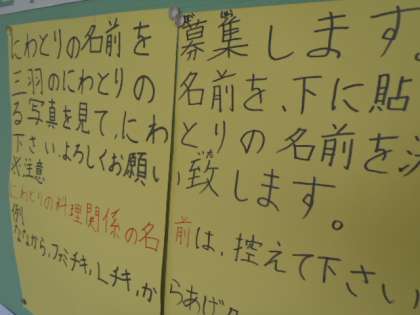 にわとりの名前を募集します。
三羽のにわとりの名前を、下に貼
る写真を見て、にわとりの名前を決
下さい。よろしくお願い致します。
※注意
にわとりの料理関係の名前は、控えて下さい
例
ななから、ファミチキ、Lチキ、からあげ